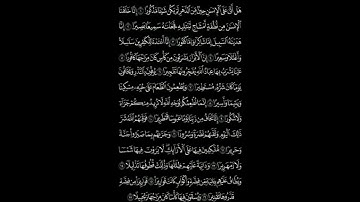 هَلْ أَتَىٰ عَلَى ٱلْإِنسَٰنِ حِينٌ مِّنَ ٱلدَّهْرِ لَمْ يَكُن شَيْـًٔا مَّذْكُورًا ١ إِنَّا خَلَقْنَا
ٱلْإِنسَٰنَ مِن نُّطْفَةٍ أَمْشَاجٍ نَّبْتَلِيهِ فَجَعَلْنَٰهُ سَمِيعًۢا بَصِيرًا ٢ إِنَّا
هَدَيْنَٰهُ ٱلسَّبِيلَ إِمَّا شَاكِرًا وَإِمَّا كَفُورًا ٣ إِنَّآ أَعْتَدْنَا لِلْكَٰفِرِينَ سَلَٰسِلَا۟
وَأَغْلَٰلًا وَسَعِيرًا ٤ إِنَّ ٱلْأَبْرَارَ يَشْرَبُونَ مِن كَأْسٍ كَانَ مِزَاجُهَا كَافُورًا ٥
عَيْنًا يَشْرَبُ بِهَا عِبَادُ ٱللَّهِ يُفَجِّرُونَهَا تَفْجِيرًا ٦ يُوفُونَ بِٱلنَّذْرِ وَيَخَافُونَ
يَوْمًا كَانَ شَرُّهُۥ مُسْتَطِيرًا ٧ وَيُطْعِمُونَ ٱلطَّعَامَ عَلَىٰ حُبِّهِۦ مِسْكِينًا
وَيَتِيمًا وَأَسِيرًا ٨ إِنَّمَا نُطْعِمُكُمْ لِوَجْهِ ٱللَّهِ لَا نُرِيدُ مِنكُمْ جَزَآءً
وَلَا شُكُورًا ٩ إِنَّا نَخَافُ مِن رَّبِّنَا يَوْمًا عَبُوسًا قَمْطَرِيرًا ١٠ فَوَقَىٰهُمُ ٱللَّهُ شَرَّ
ذَٰلِكَ ٱلْيَوْمِ وَلَقَّىٰهُمْ نَضْرَةً وَسُرُورًا ١١ وَجَزَىٰهُم بِمَا صَبَرُوا۟ جَنَّةً
وَحَرِيرًا ١٢ مُّتَّكِـِٔينَ فِيهَا عَلَى ٱلْأَرَآئِكِ لَا يَرَوْنَ فِيهَا شَمْسًا
وَلَا زَمْهَرِيرًا ١٣ وَدَانِيَةً عَلَيْهِمْ ظِلَٰلُهَا وَذُلِّلَتْ قُطُوفُهَا تَذْلِيلًا ١٤
وَيُطَافُ عَلَيْهِم بِـَٔانِيَةٍ مِّن فِضَّةٍ وَأَكْوَابٍ كَانَتْ قَوَارِيرَا۠ ١٥ قَوَارِيرَا۟ مِن فِضَّةٍ
قَدَّرُوهَا تَقْدِيرًا ١٦ وَيُسْقَوْنَ فِيهَا كَأْسًا كَانَ مِزَاجُهَا زَنجَبِيلًا ١٧